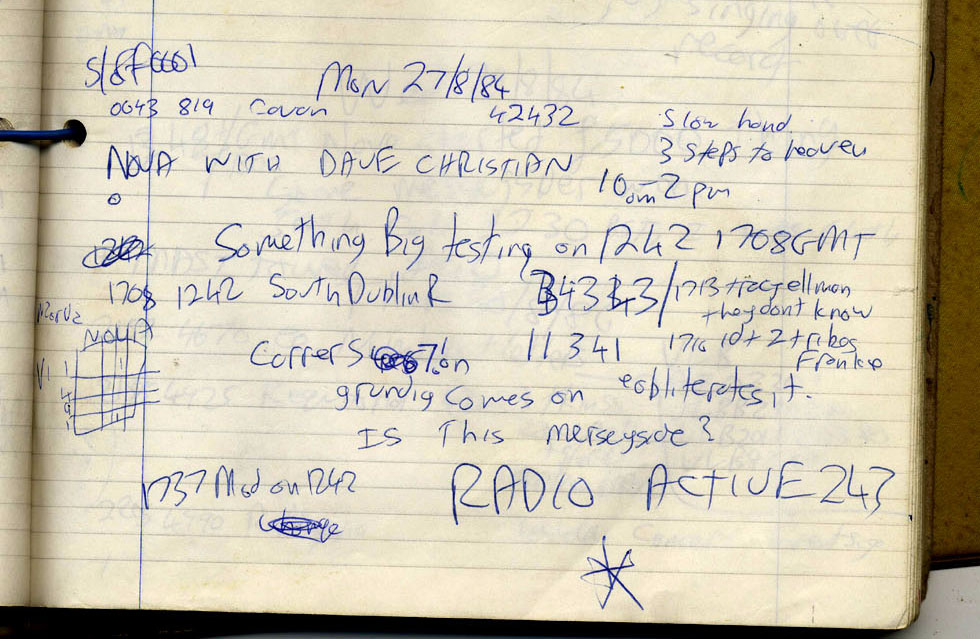 Mon 27/8/84
0043 819 Cavan 42432
Slow hand
3 steps to heaven
NOVA WITH DAVE CHRISTIAN
10am-2pm
Something Big testing on 1242 1708GMT
1708 1242 South Dublin R 43 / 1713 tracy ellman
they dont know
NOVA
11341 1716 id + 2 tribes
Frankie
grundig comes on + obliterates it.
Is This merseyside?
1737 Mod on 1242
RADIO ACTIVE 247